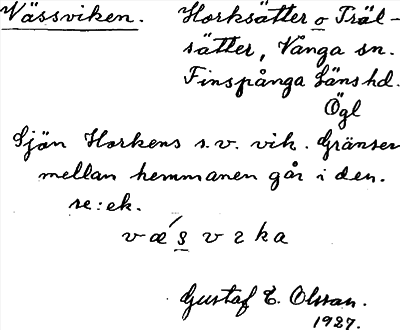 Vässviken. Horksätter o Träl-
sätter, Vånga sn.
Finspånga Länshd.
Ögl
Sjön Horkens s.v. vik. Gränsen
mellan hemmanen går i den.
se: ek.
Gustaf E. Olsson.
1927.